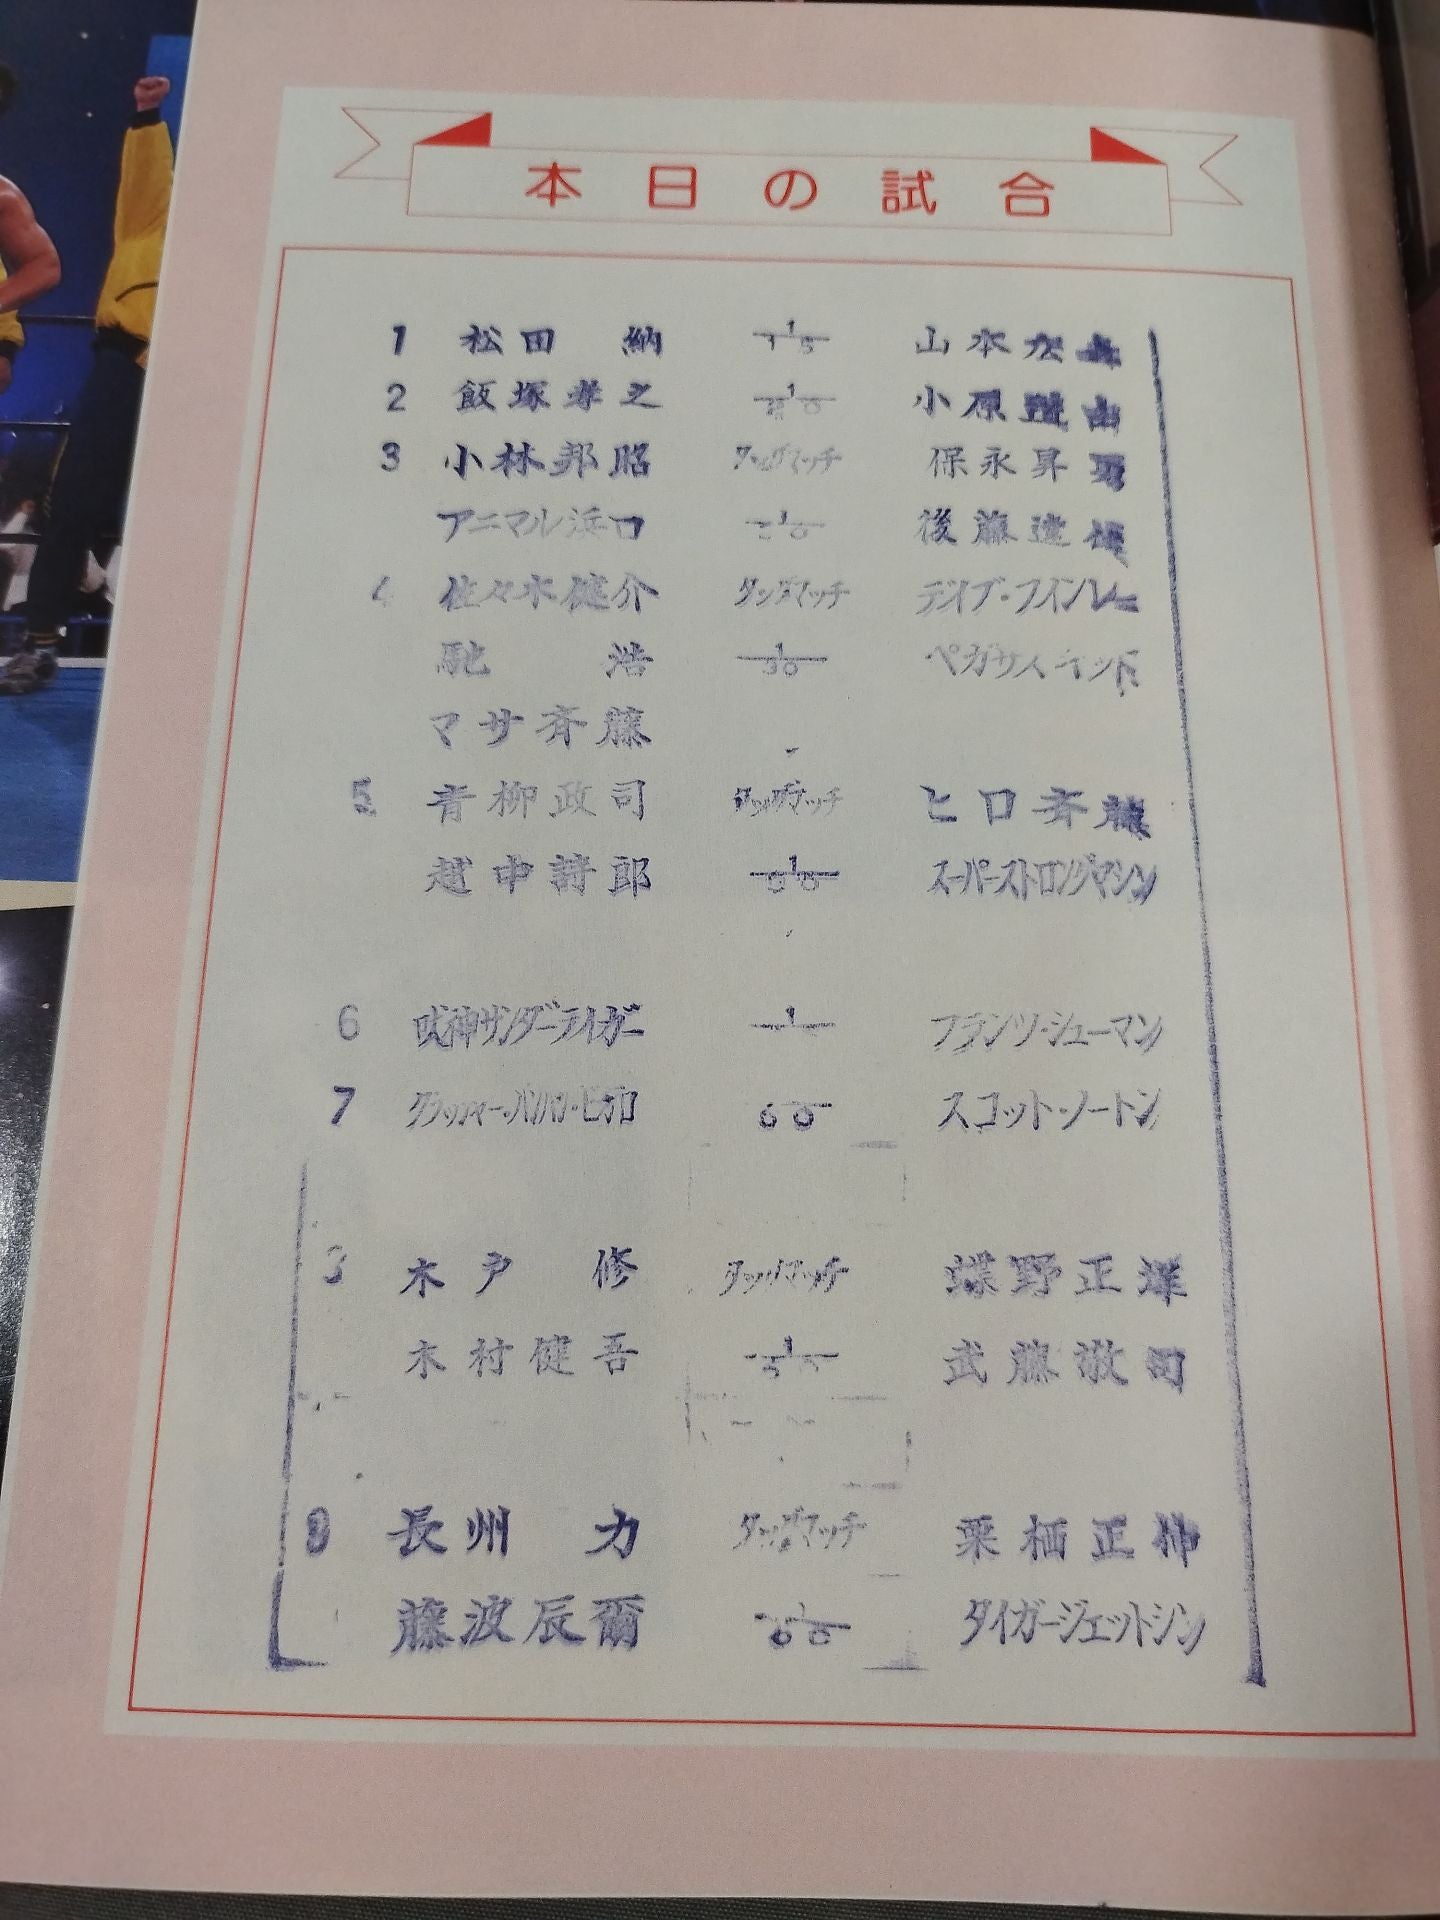 本日の試合
1 松田 納 1/15 山本広
2 飯塚孝之 1/20 小原道由
3 小林邦昭 タッグマッチ 保永昇男
アニマル浜口 1/20 後藤達俊
4 佐々木健介 タッグマッチ デイブ・フィンレー
馳 浩 1/30 ペガサスキッド
マサ斉藤
5 青柳政司 タッグマッチ ヒロ斉藤
越中詩郎 1 スーパーストロングマシン
6 獣神サンダーライガー 1 フランツ・シューマン
7 クラッシャー・バンバン・ビガロ 60 スコット・ノートン
木戸 修 タッグマッチ 蝶野正洋
木村健吾 1 武藤敬司
9 長州 力 タッグマッチ 栗栖正伸
藤波辰爾 1/60 タイガージェットシン